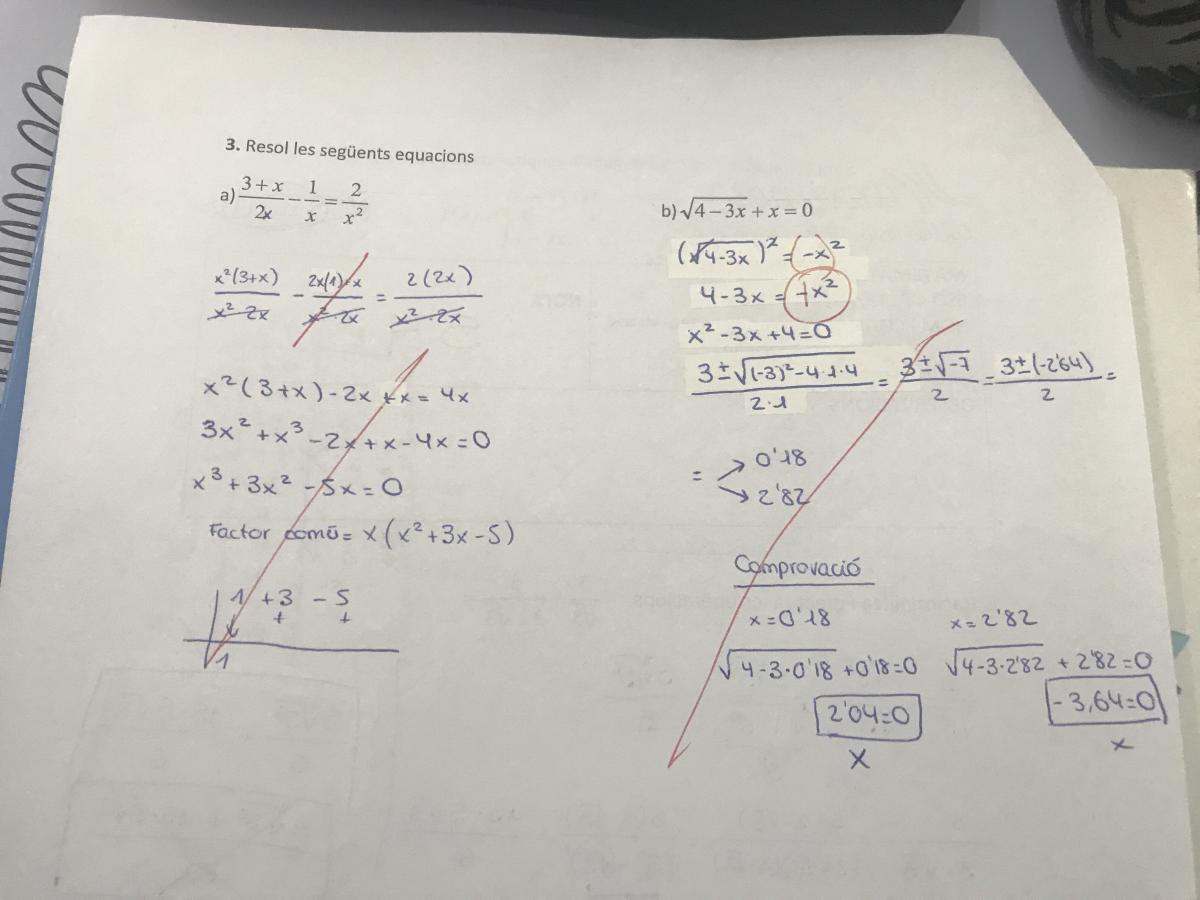 3. Resol les següents equacions
a) \frac{3+x}{2x} - \frac{1}{x} = \frac{2}{x^2}
\frac{x^2(3+x)}{x^2 \cdot 2x} - \frac{2x(1) \cdot x}{x^2 \cdot 2x} = \frac{2(2x)}{x^2 \cdot 2x}
x^2(3+x) - 2x + x = 4x
3x^2 + x^3 - 2x + x - 4x = 0
x^3 + 3x^2 - 5x = 0
Factor comú = x(x^2 + 3x - 5)
1 +3 -5
+ +
1
b) \sqrt{4-3x} + x = 0
(\sqrt{4-3x})^2 = -x^2
4-3x = +x^2
x^2 - 3x + 4 = 0
\frac{3 ± \sqrt{(-3)^2 - 4·1·4}}{2·1} = \frac{3 ± \sqrt{-7}}{2} = \frac{3 ± (-2'64)}{2} =
= 0'18
2'82
Comprovació
x = 0'18 x = 2'82
\sqrt{4-3·0'18} + 0'18 = 0 \sqrt{4-3·2'82} + 2'82 = 0
2'04 = 0 -3,64 = 0
x x